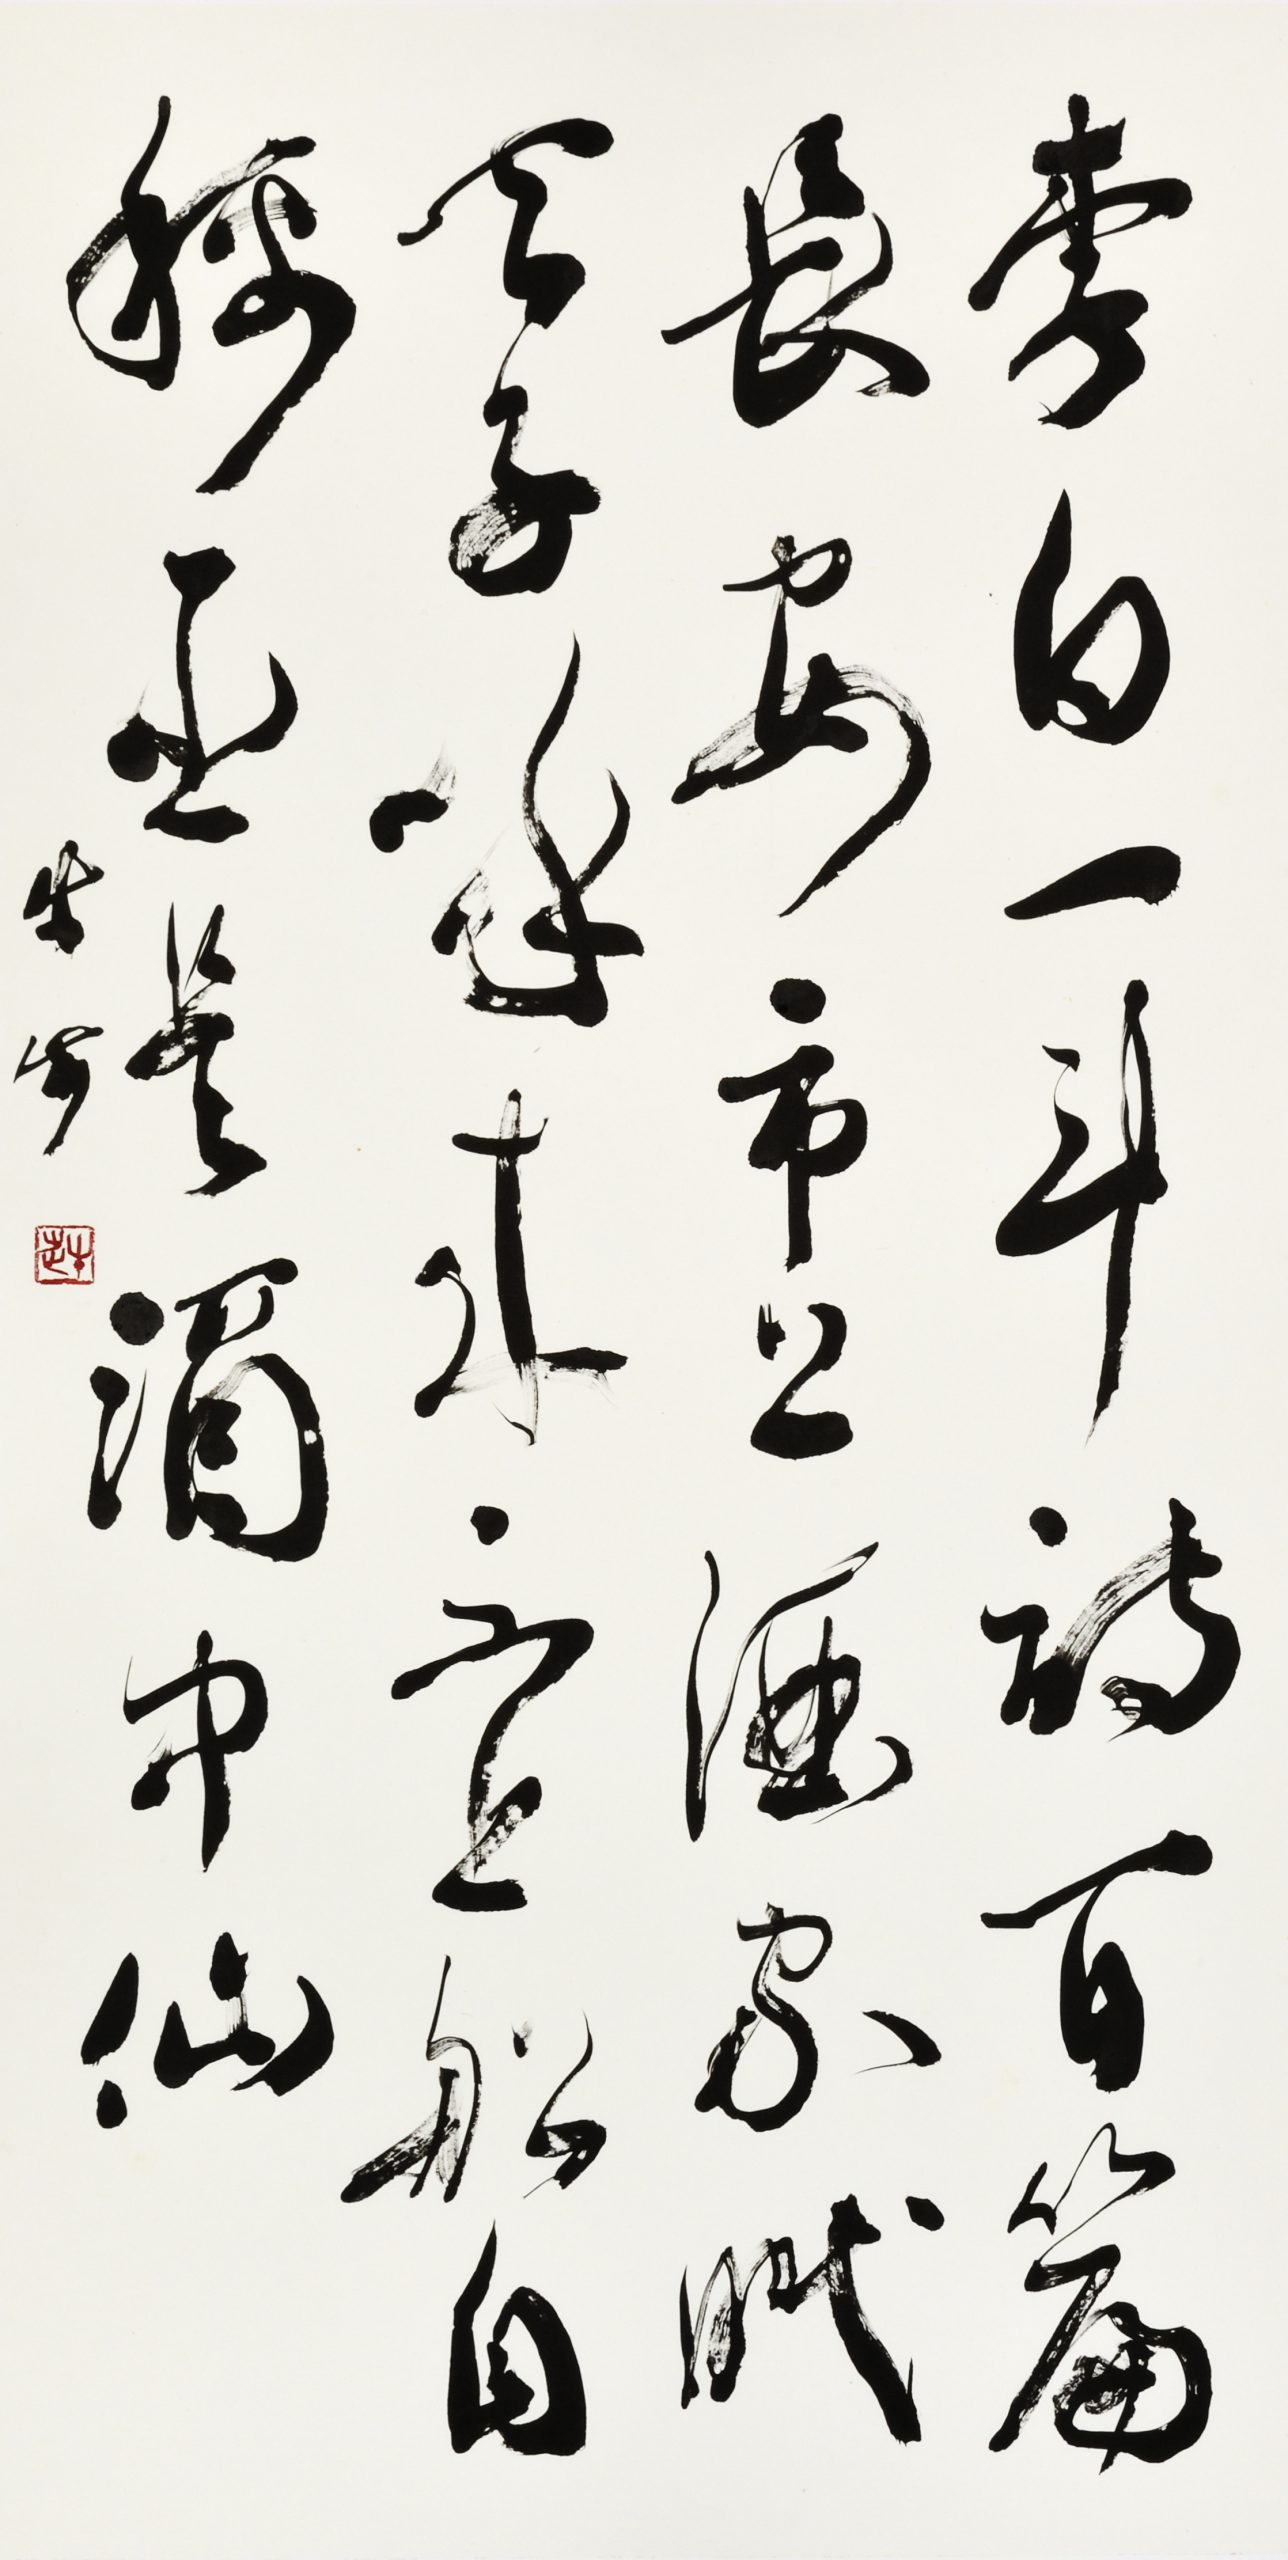 李白一斗詩百篇
長安市上酒家眠
天子呼來不上船自
稱臣是酒中仙